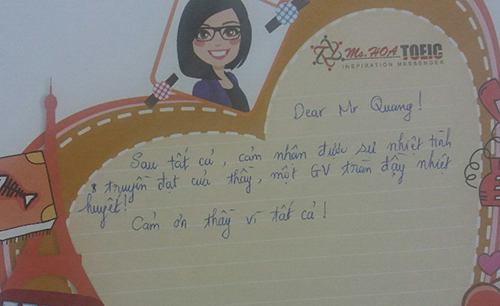 Ms. HOA TOEIC
INSPIRATION MESSENGER
Dear Mr Quang!
Sau tất cả, cảm nhận được sự nhiệt tình
& truyền đạt của thầy, một GV tràn đầy nhiệt
huyết!
Cảm ơn thầy vì tất cả!